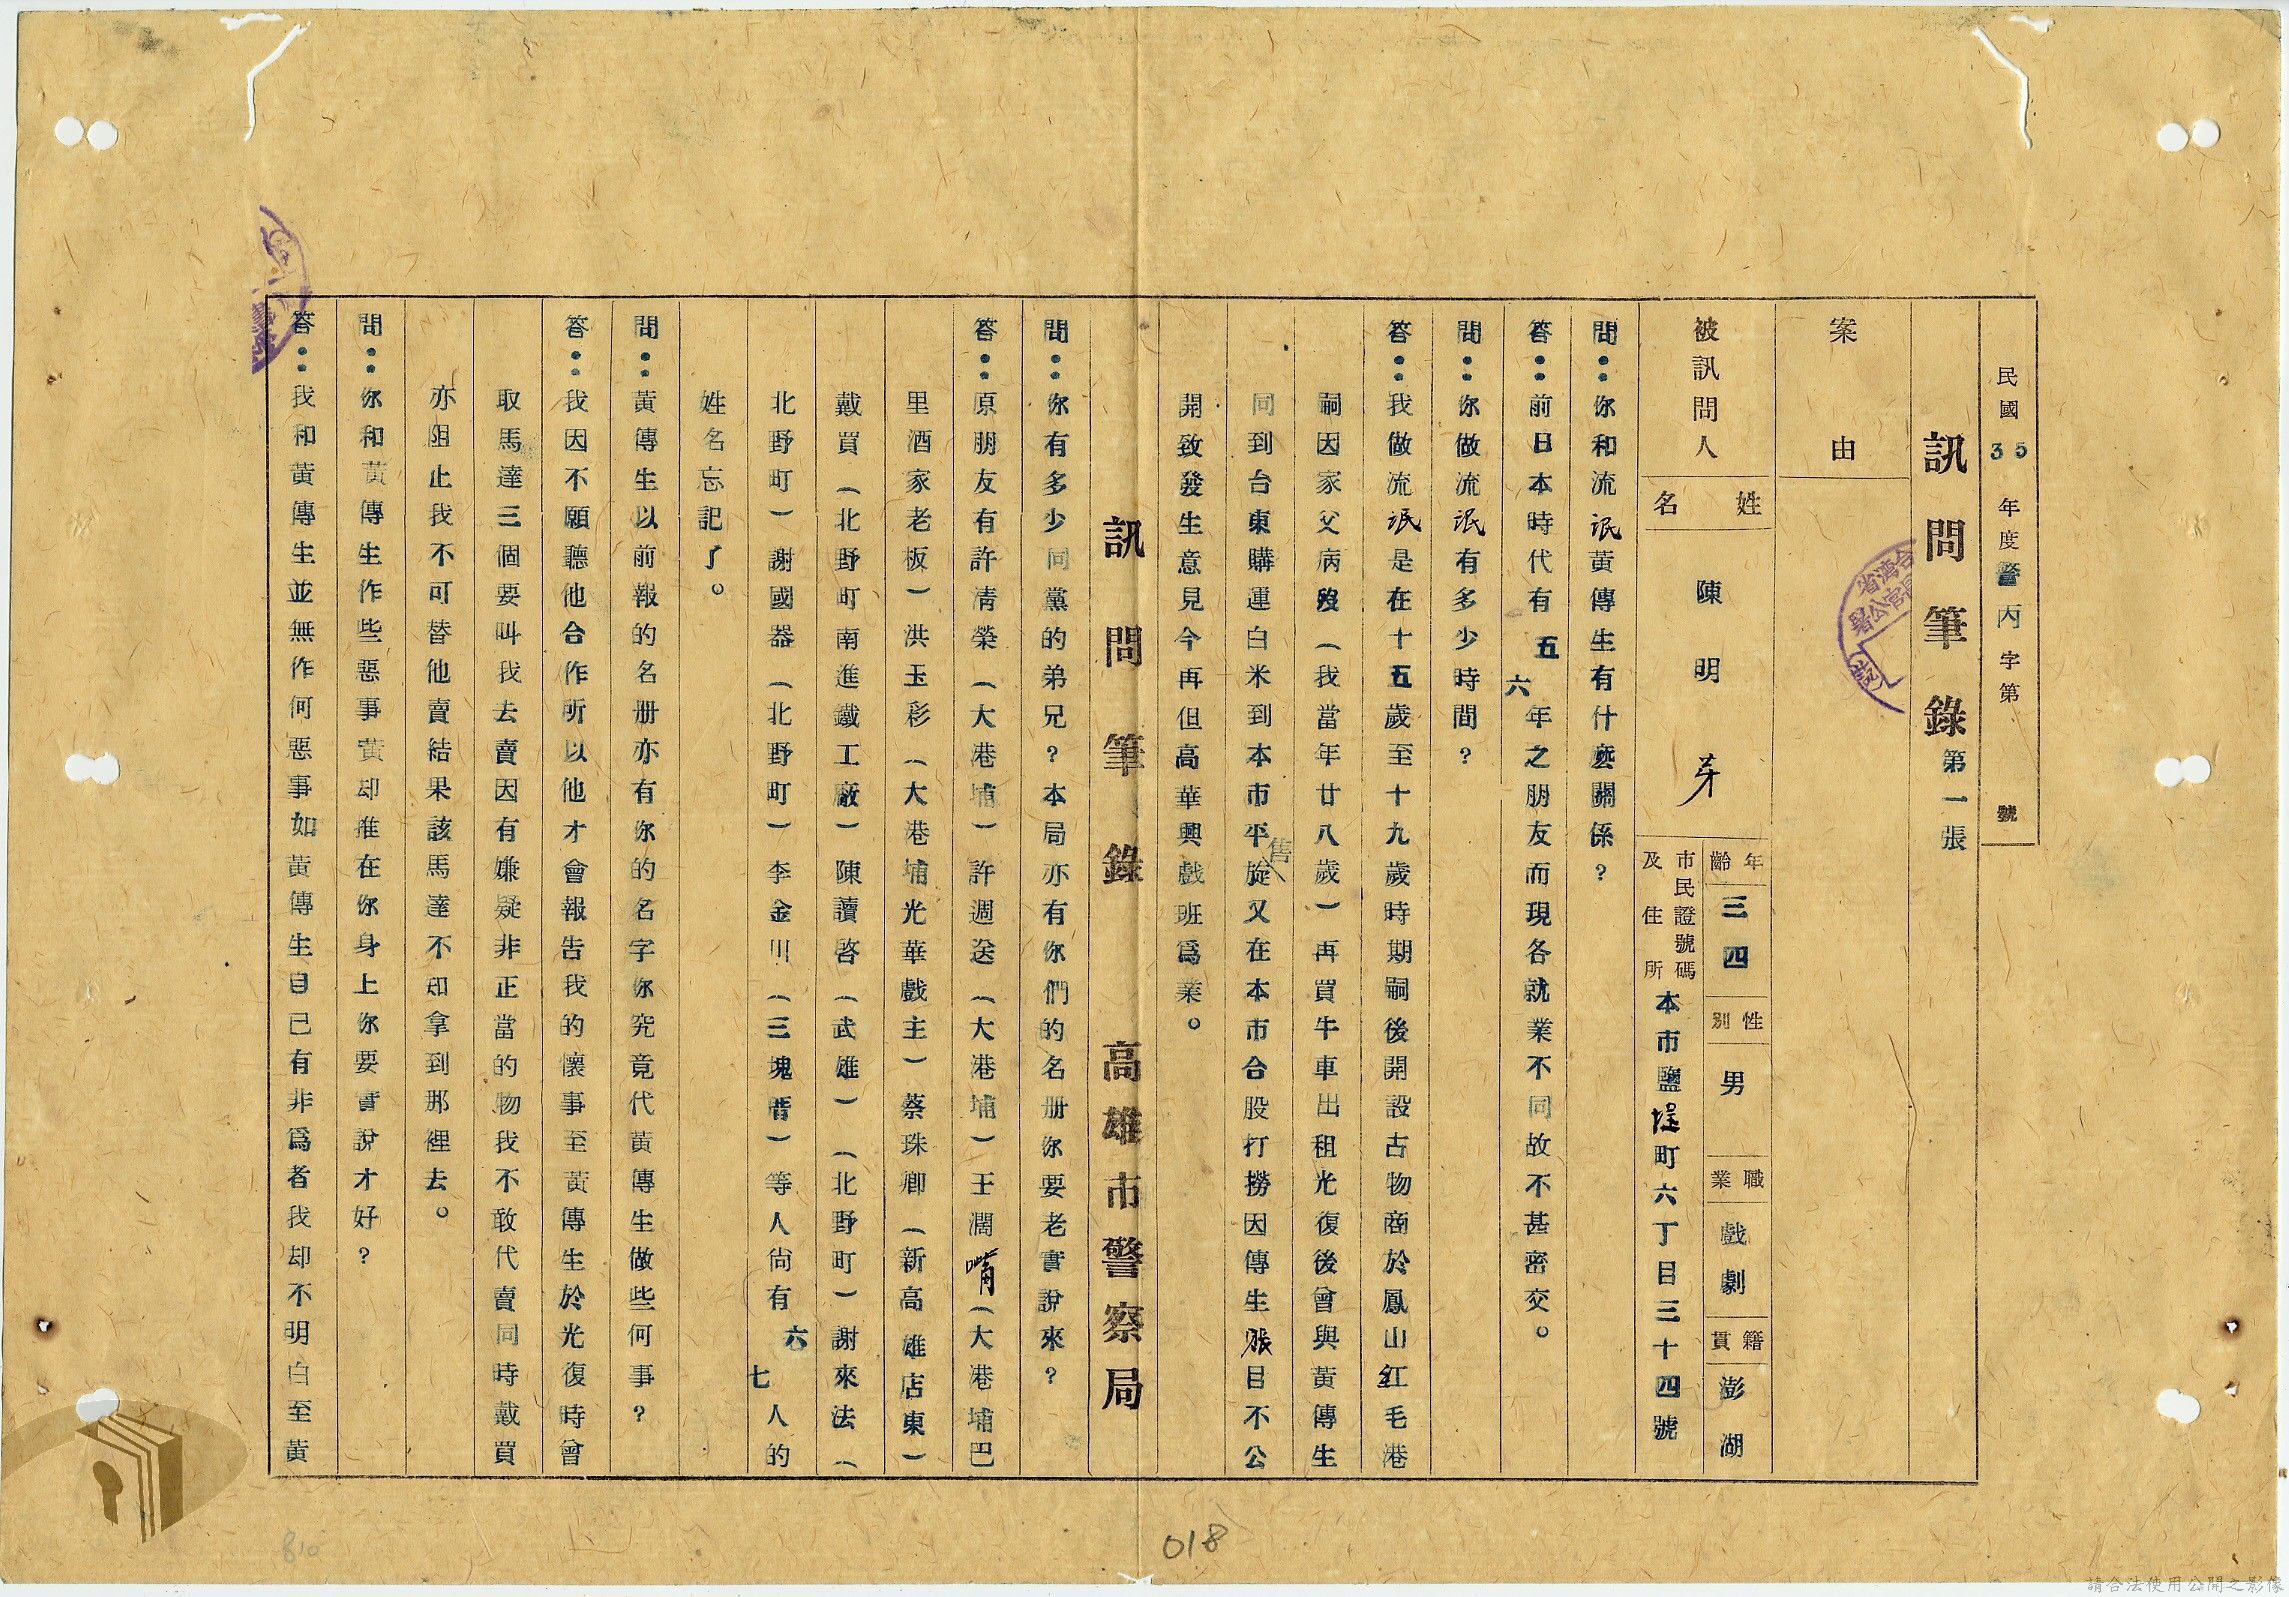 民國35年度警丙字第 號
訊問筆錄 第一張
案由
被訊問人
姓名 陳明芽
年齡 三四
性別 男
職業 戲劇
籍貫 澎湖
市民證號碼及住所 本市鹽埕町六丁目三十四號
問：你和流氓黃傳生有什麽關係？
答：前日本時代有五六年之朋友而現各就業不同故不甚密交。
問：你做流氓有多少時間？
答：我做流氓是在十五歲至十九歲時期嗣後開設古物商於鳳山紅毛港
嗣因家父病歿（我當年廿八歲）再買牛車出租光復後曾與黃傳生
同到台東購運白米到本市平售旋又在本市合股打撈因傳生賬目不公
開致發生意見今再但高華興戲班爲業。
訊問筆錄 高雄市警察局
問：你有多少同黨的弟兄？本局亦有你們的名册你要老實說來？
答：原朋友有許清榮（大港埔）許週送（大港埔）王濶嘴（大港埔巴
里酒家老板）洪玉彩（大港埔光華戲主）蔡珠卿（新高雄店東）
戴買（北野町南進鐵工廠）陳讚啓（武雄）（北野町）謝來法（
北野町）謝國器（北野町）李金川（三塊厝）等人尙有六七人的
姓名忘記了。
問：黃傳生以前報的名册亦有你的名字你究竟代黃傳生做些何事？
答：我因不願聽他合作所以他才會報告我的懷事至黃傳生於光復時曾
取馬達三個要叫我去賣因有嫌疑非正當的物我不敢代賣同時戴買
亦阻止我不可替他賣結果該馬達不知拿到那裡去。
問：你和黃傳生作些惡事黃却推在你身上你要實說才好？
答：我和黃傳生並無作何惡事如黃傳生自己有非爲者我却不明白至黃
018
請合法使用公開之影像